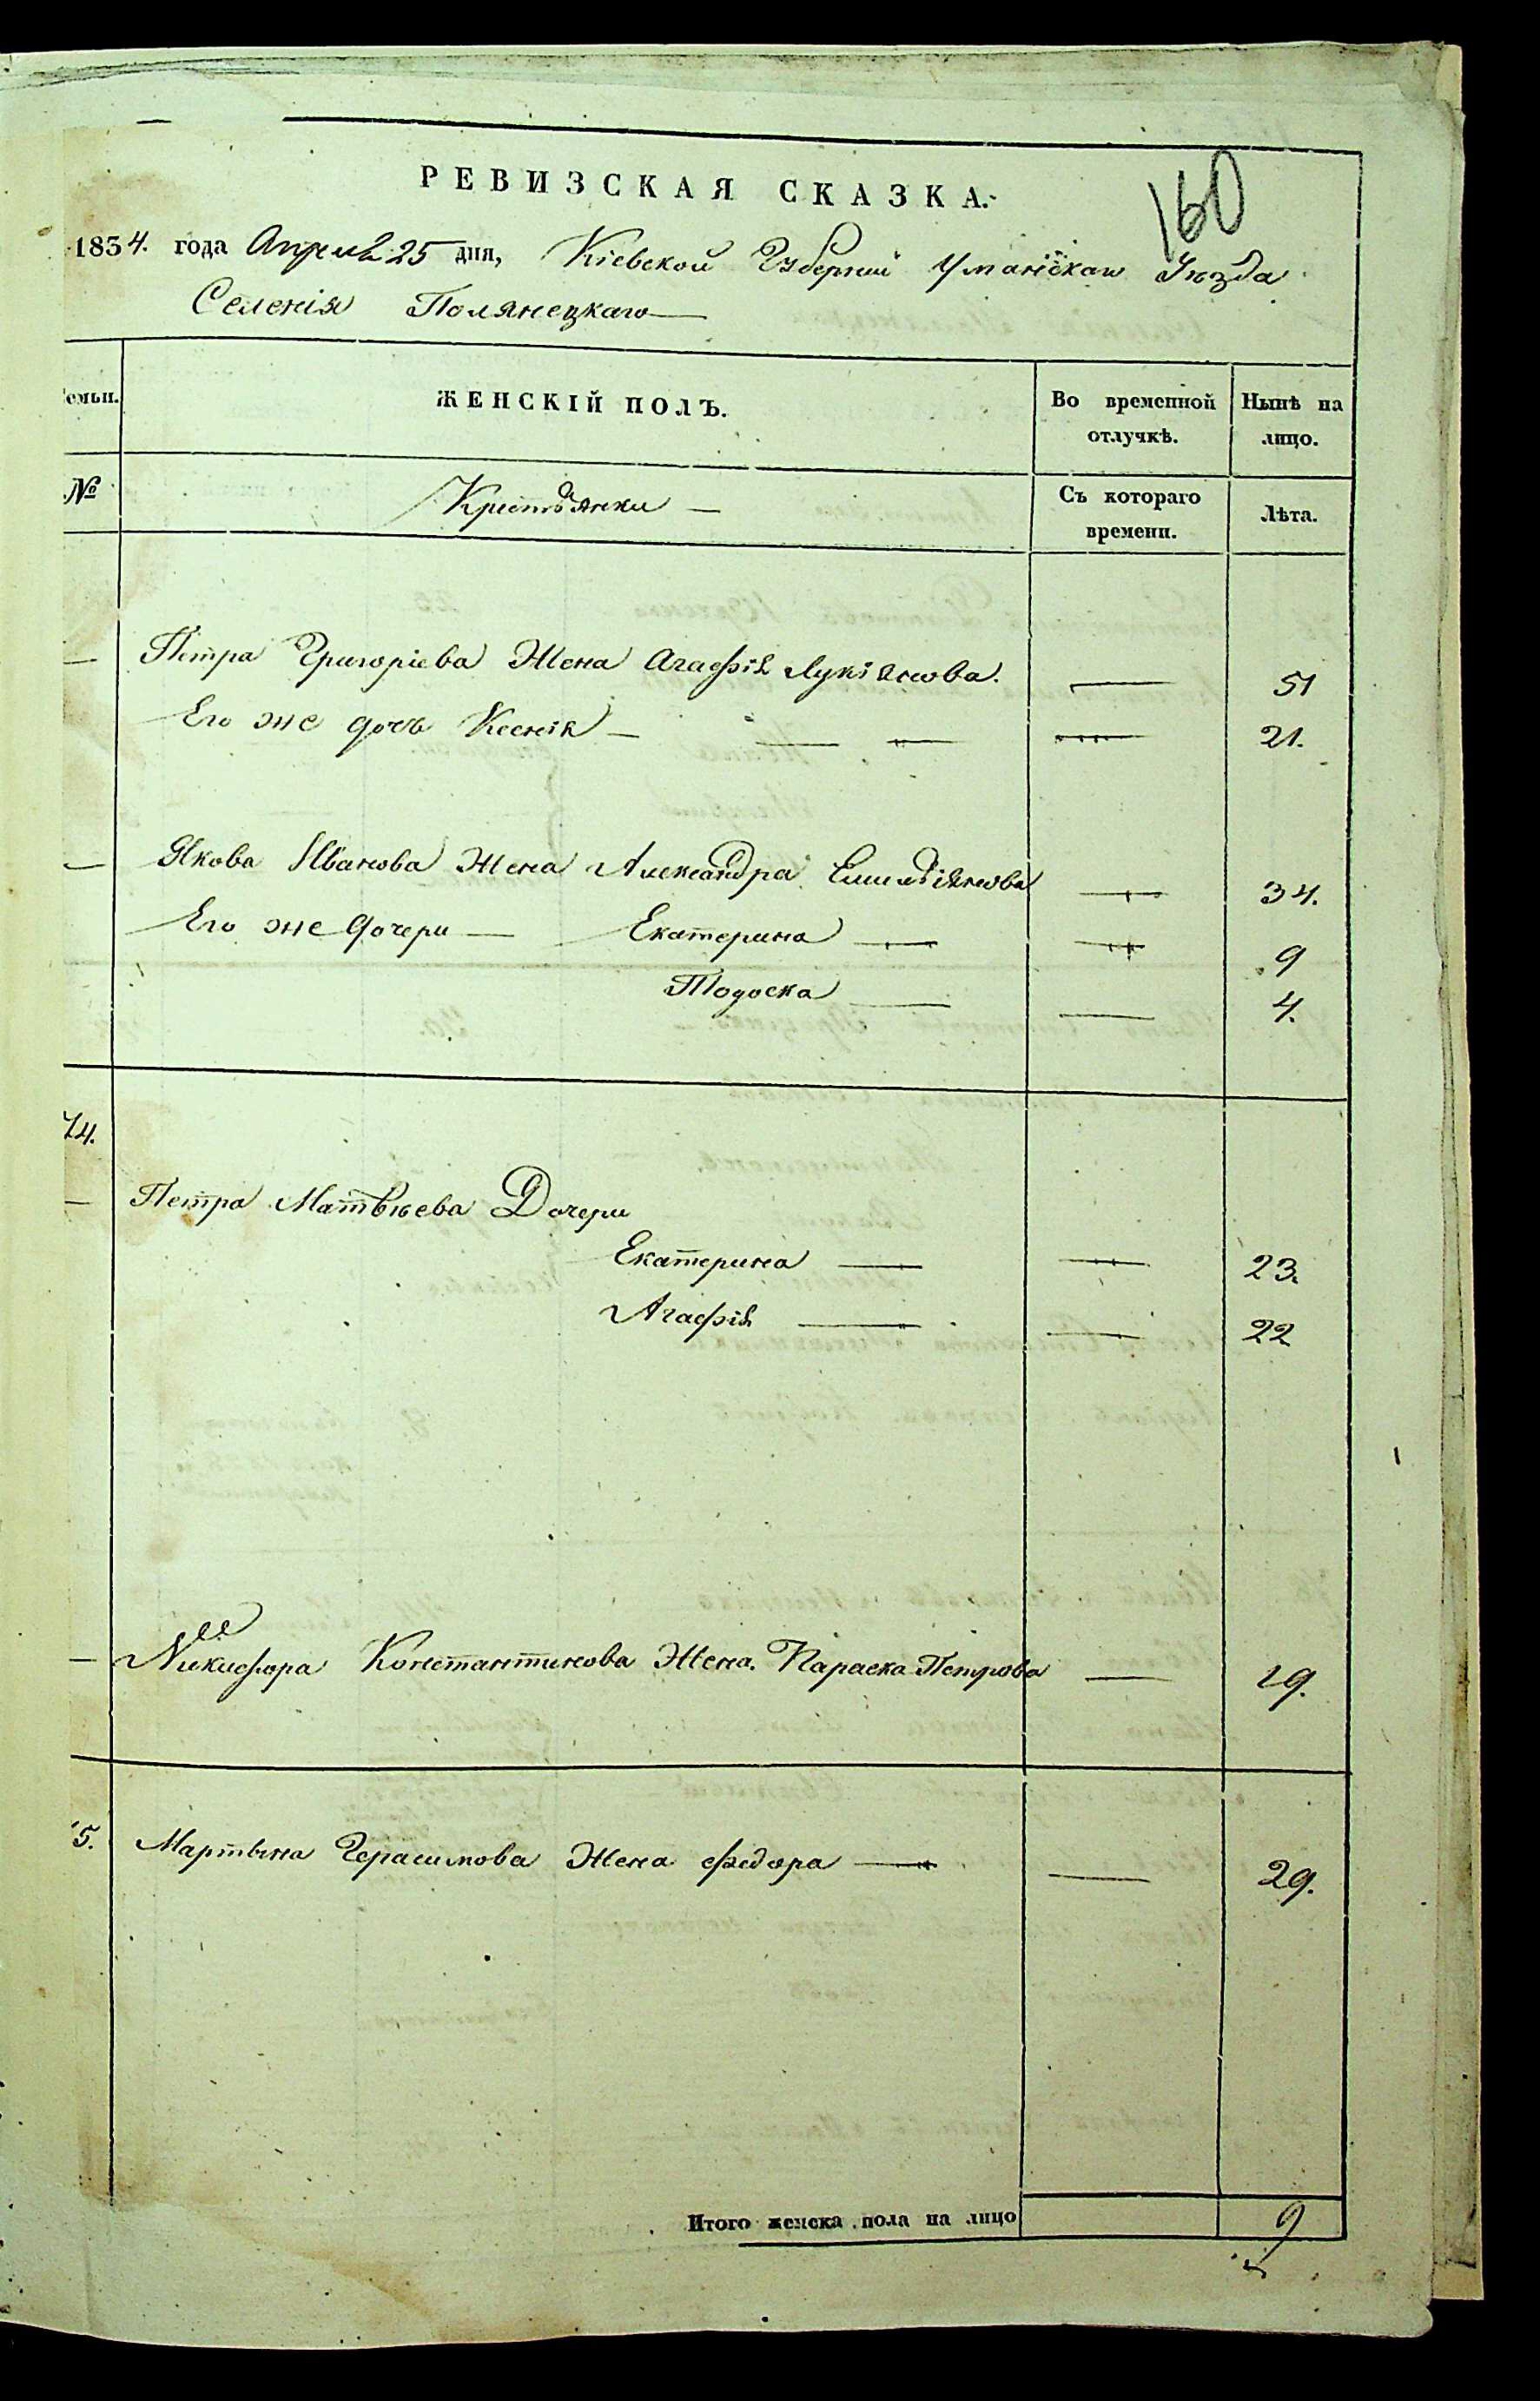 РЕВИЗСКАЯ СКАЗКА.
160
1834. года Апреля 25 дня, Кіевской Губерніи Уманскаго Уѣзда
Селенія Полянецкаго
Семьи. ЖЕНСКІЙ ПОЛЪ. Во временной отлучкѣ. Нынѣ на лицо.
№ Крестьянки — Съ котораго времени. Лѣта.
— Петра Григоріева Жена Агафія Лукіянова. — 51
Его же дочь Ксенія — — — — 21.
— Якова Иванова Жена Александра Емильіянова — 34.
Его же дочери — Екатерина — — 9
Тодоска — — 4.
74.
— Петра Матвѣева Дочери
Екатерина — — 23.
Агафія — — 22
— Никифора Константинова Жена. Параска Петрова — 19.
5. Мартына Герасимова Жена Федора — — 29.
Итого женска пола на лицо 9